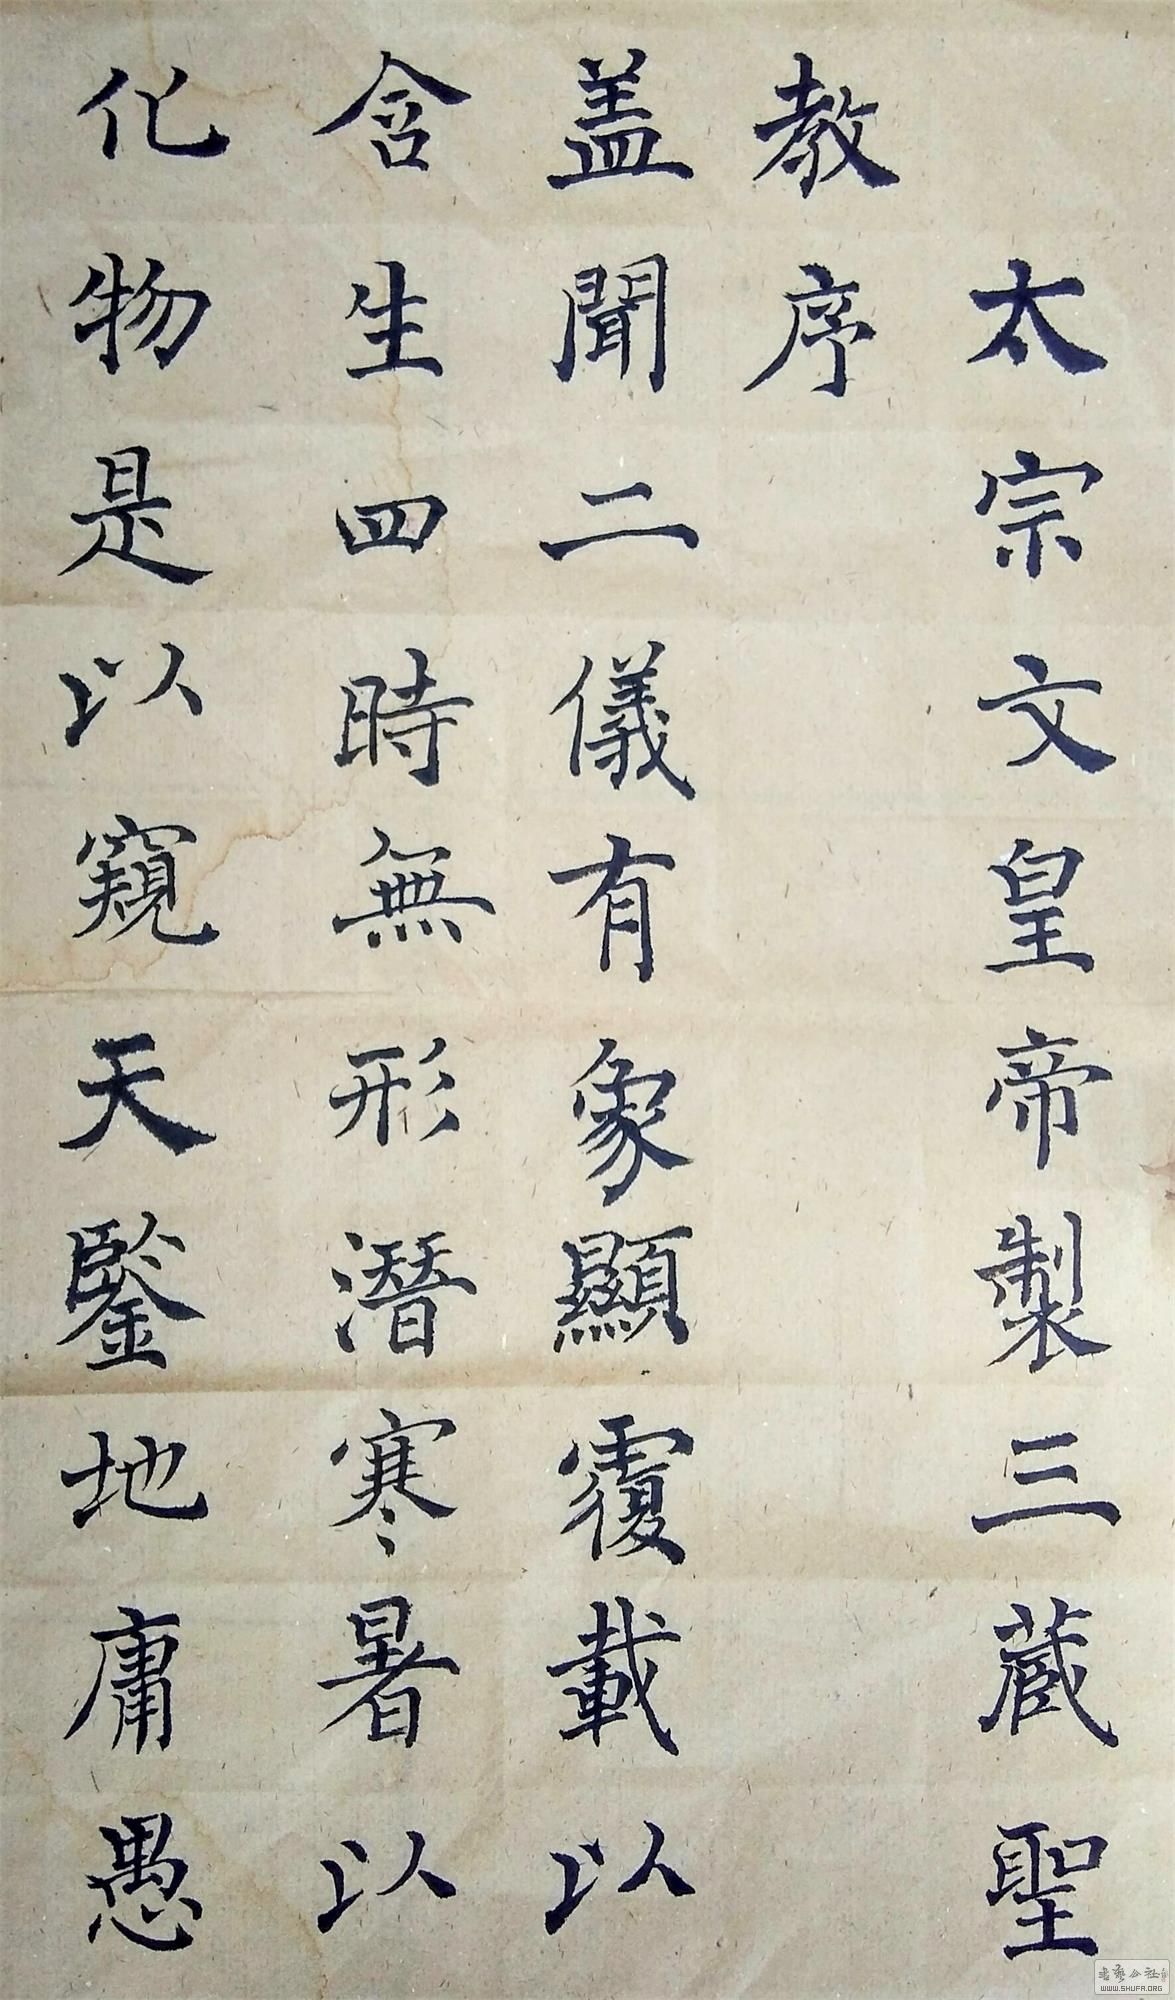 太宗文皇帝製三蔵聖
教序
盖聞二儀有象顯覆載以
含生四時無形潛寒暑以
化物是以窺天鑒地庸愚
WWW.SHUFA.ORG